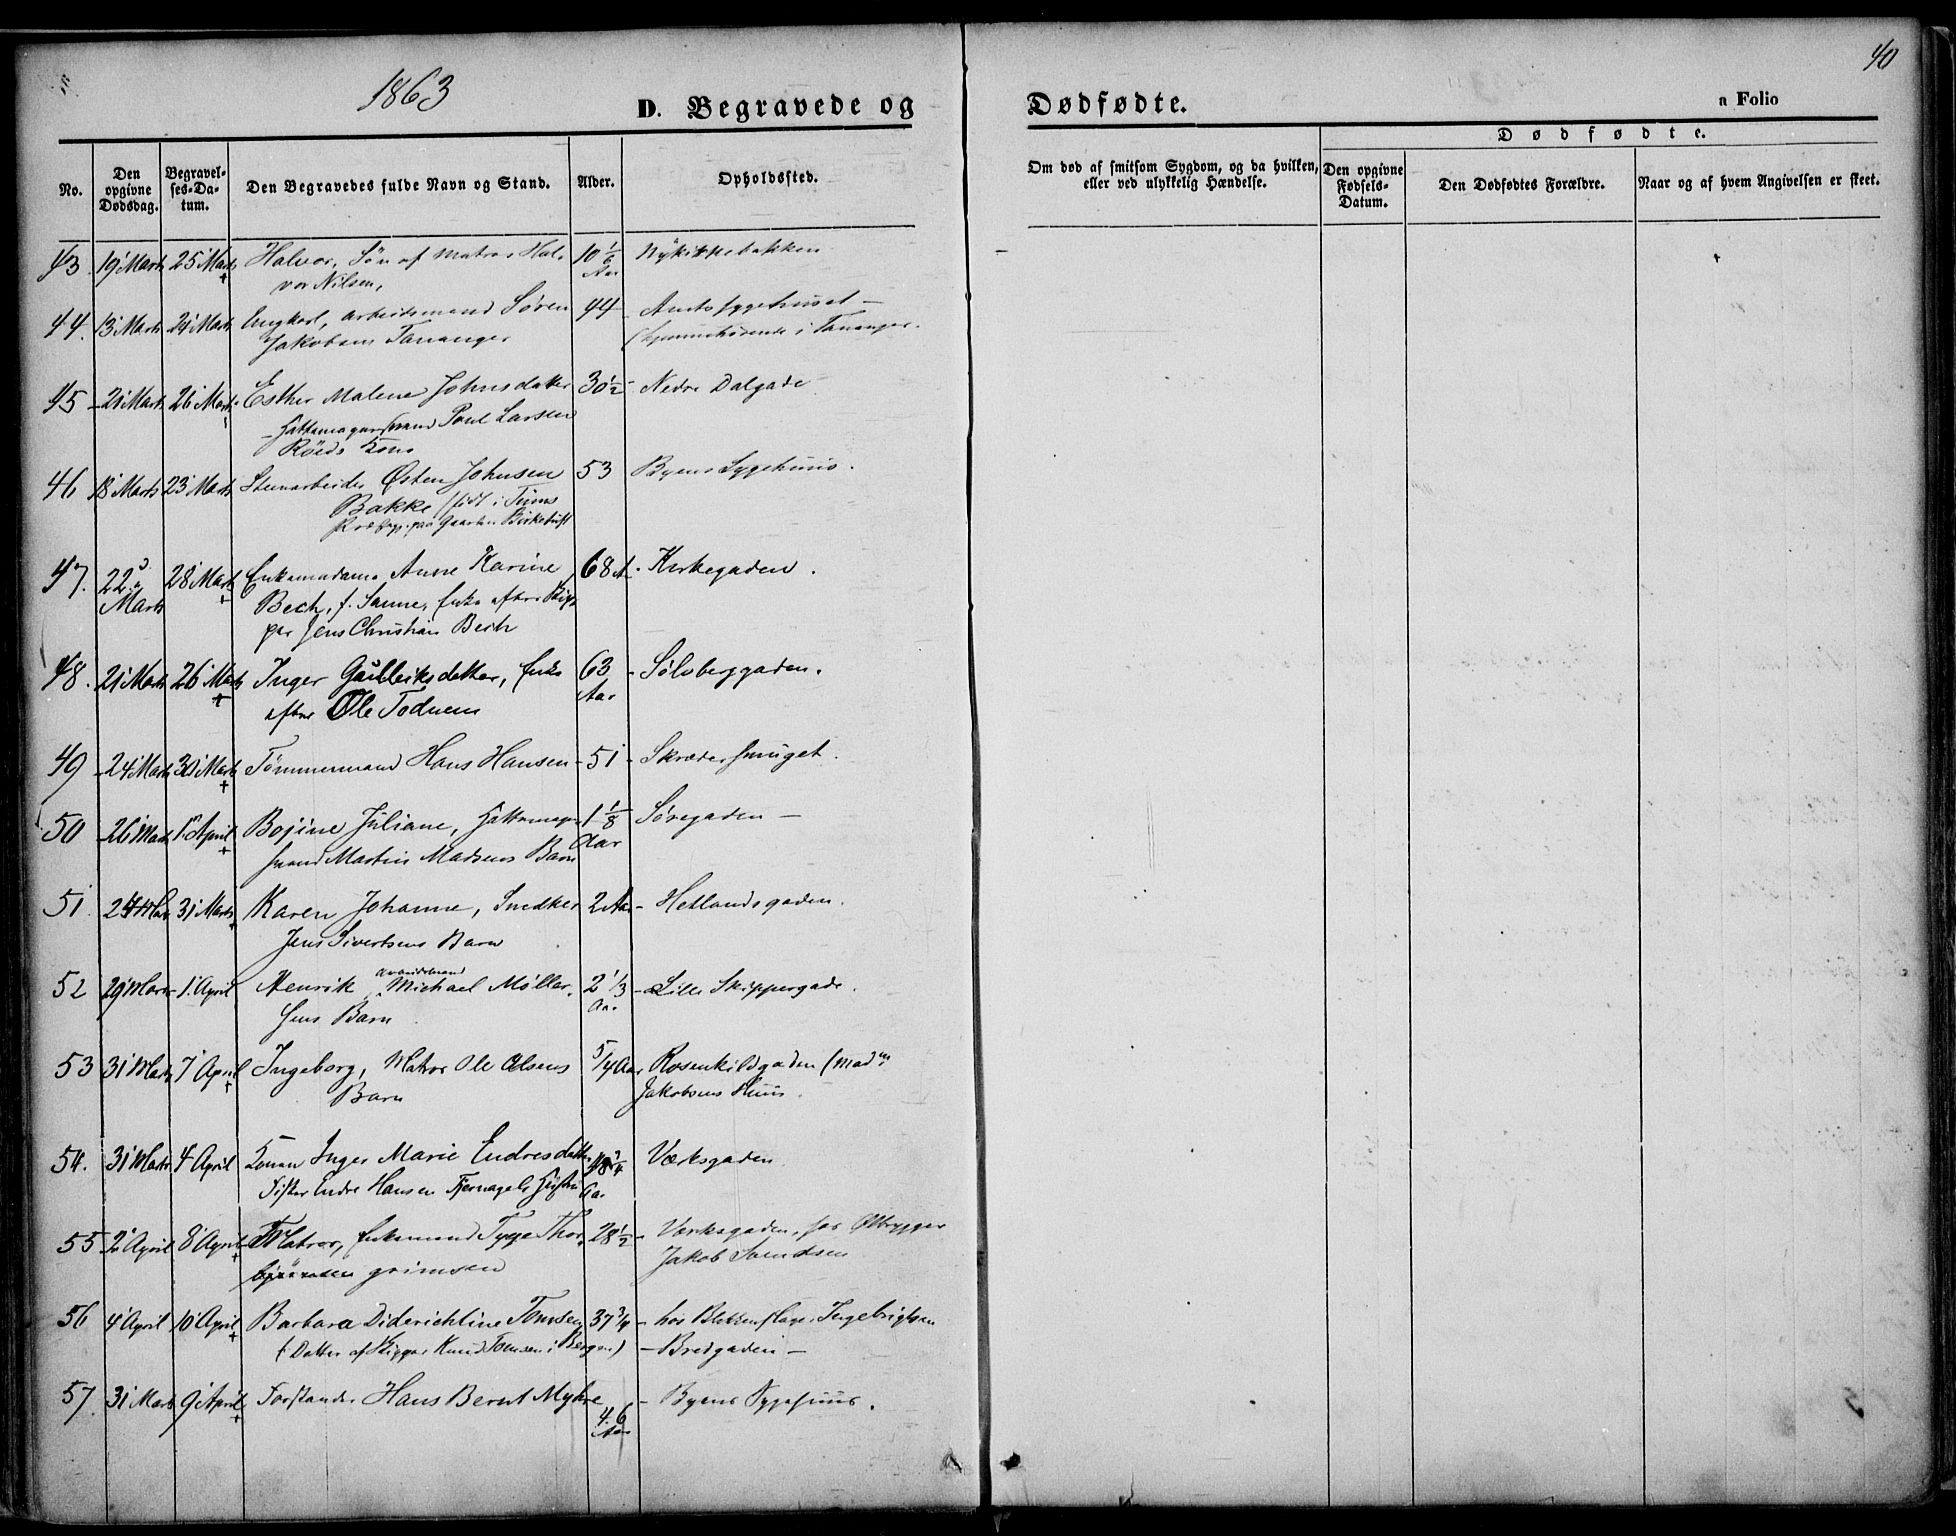 40
1863
D. Begravede og
Dødfødte.
n Folio
No.
Den opgivne Dødsdag.
Begravelses-Datum.
Den Begravedes fulde Navn og Stand.
Alder.
Opholdssted.
Om død af smitsom Sygdom, og da hvilken, eller ved ulykkelig Hændelse.
Dødfødte.
Den opgivne Fødsels-Datum.
Den Dødfødtes Forældre.
Naar og af hvem Angivelsen er skeet.
43. 19 Marts 25 Marts Halvor, Søn af Matros Hal- 10 1/6 Aar
vor Nilsen,
44. 13 Marts 21 Marts Ungkarl, arbeidsmand Søren 44 Amtssygehuset -
Jakobsens Tananger (hjemmehørende i Tananger.
45 - 21 Marts 26 Marts Esther Malene Johnsdatter 30 1/2 - Nedre Dalgade
Hattemagersvend Poul Larsen
Röeds Kone
46 18 Marts 23 Marts Steenarbeider Østen Johnsen 53 Byens Sygehuus.
Bakke, født i Tinns
Præstegj. paa Gaarden
47. 22 Marts 28 Marts Enkemadame Anne Karine 68 A. Kirkegaden.
Bech, f. Sanne, Enke efter Skip-
per Jens Christian Bech
48. 21 Marts 26 Marts Inger Gulleiksdatter, Enke 63 Aar - Sølvberggaden.
efter Ole Toduem
49 - 24 Marts 30 Marts Tømmermand Hans Hansen - 51 - Skrædersmuget.
50 - 26 Marts 1 April Bojine Juliane, Hattemager- 1 1/8 Aar Søregaden -
svend Martin Madsens Barn
51. 24 Mar 31 Marts Karen Johanne, Snedker 2 Aar - Hetlandsgaden.
Jens Sivertsens Barn
52 29 Marts 1 April Henrik, Arbeidsmand Michael Møller- 2 1/3 Aar - Lille Skippergade.
sens Barn
53 31 Marts 7 April Ingeborg, Matros Ole Olsens 5/4 Aar Rosenkildgaden (Madm
Barn Jakobsens Huus.
54. 31 Marts 4 April Konen Inger Marie Endresdatter 48 3/4 Aar Værksgaden
Fisker Endre Hansen Fjernagels Hustru
55 - 2 April 8 April Matros, Enkemand Tygge Thor- 28 1/2 - Værksgaden, hos Ølbrygger
björnsen grimsen Jakob Svendsen
56 4 April 10 April Barbara Diderichtine Tomsen 37 3/4 - hos Blikkenslager Ingebrigtsen
(Datter af Skipper Knud Tomsen i Bergen) - Bredgaden -
57. 31 Marts 9 April Forstander Hans Bernt Myhre 46 Aar - Byens Sygehuus.